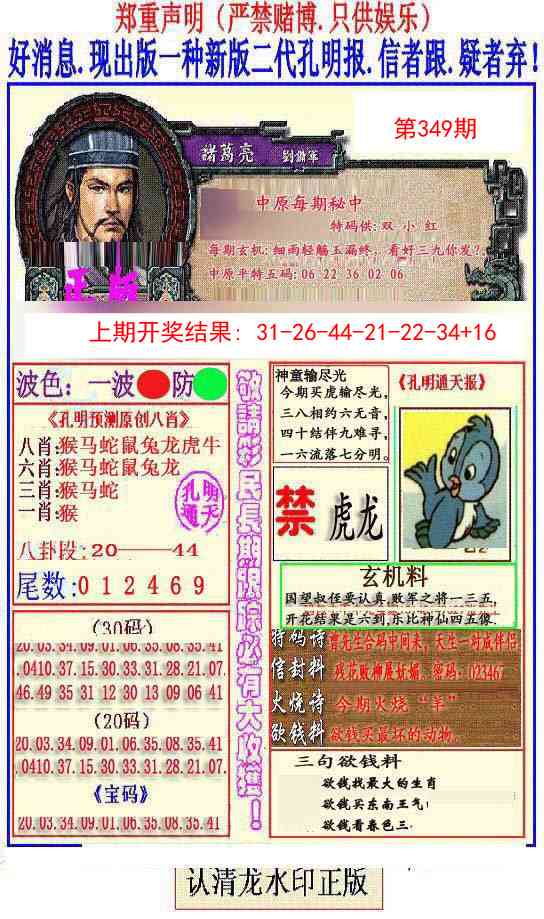 郑重声明（严禁赌博.只供娱乐）
好消息.现出版一种新版二代孔明报.信者跟.疑者弃！
第349期
諸葛亮 劉備軍
中原每期秘中
特码供:双 小 红
每期玄机:细雨轻觞玉漏终，看好三九你发?
中原平特五码:06 22 36 02 06
正版
上期开奖结果：31-26-44-21-22-34+16
波色：一波 防
《孔明预测原创八肖》
八肖:猴马蛇鼠兔龙虎牛
六肖:猴马蛇鼠兔龙
三肖:猴马蛇
一肖:猴
孔明
通天
八卦段:20——44
尾数:0 1 2 4 6 9
(30码)
20.03.34.09.01.06.35.08.35.41
.0410.37.15.30.33.31.28.21.07.
46.49.35 31 12 30 13 09 06 41
(20码)
20.03.34.09.01.06.35.08.35.41
.0410.37.15.30.33.31.28.21.07.
《宝码》
20.03.34.09.01.06.35.08.35.41
敬請彩民長期跟踪必有大收獲！
神童输尽光
今期买虎输尽光,
三八相约六无音,
四十结伴九难寻,
一六流落七分明.
《孔明通天报》
禁 虎龙
玄机料
国望叔侄要认真,败军之将一三五,
开花结果是六到,东比神仙四五像.
特码诗 曹先生合码中间来，天生一对成伴侣
信封料 残花败柳展妩媚. 密码：023467
火烧诗 今期火烧“羊”
欲钱料 欲钱买最坏的动物.
三句欲钱料
欲钱找最大的生肖
欲钱买东南王气!
欲钱看春色三.
认清龙水印正版